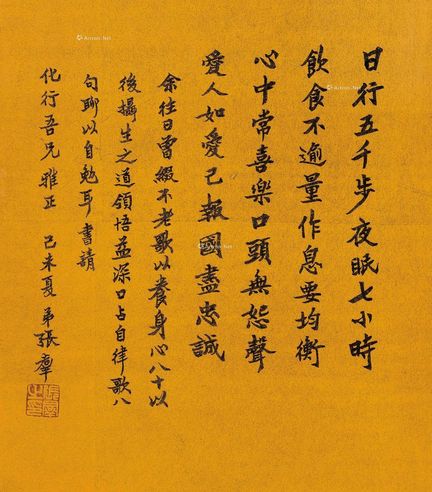 日行五千步夜眠七小時
飲食不逾量作息要均衡
心中常喜樂口頭無怨聲
愛人如愛己報國盡忠誠
余往日曾綴不老歌以養身心八十以
後攝生之道領悟益深口占自律歌八
句聊以自勉耳書請
化行吾兄雅正 己未夏 弟張羣